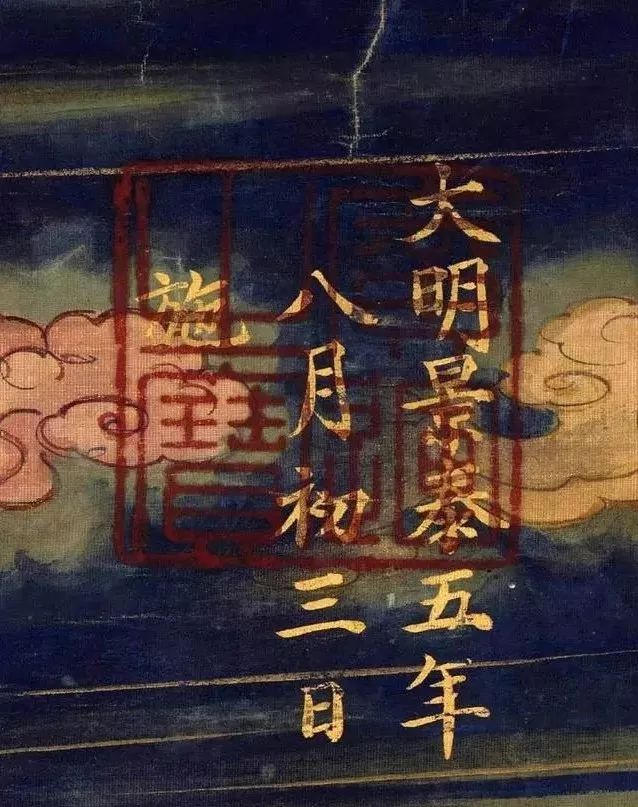 大明景泰五年
八月初三日
施